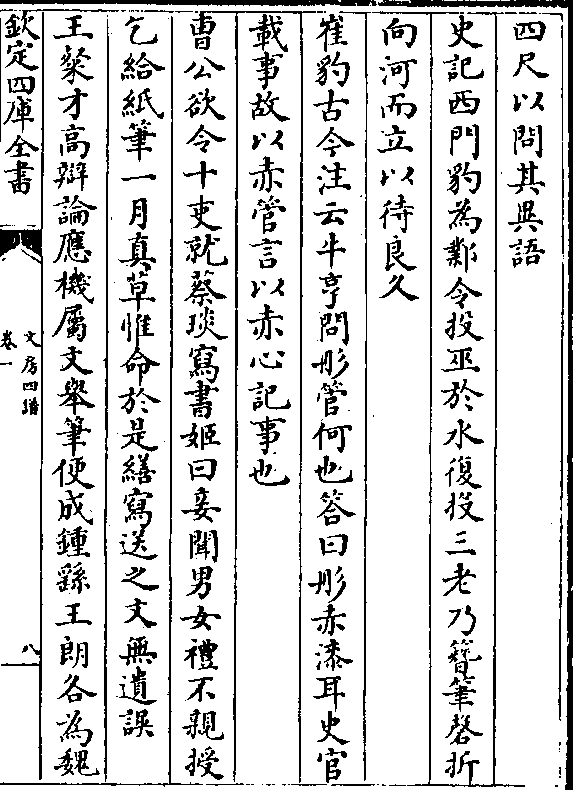 四尺以問其異語
史記西門豹為鄴令投巫於水復投三老乃簪筆磬折
向河而立以待良久
崔豹古今注云牛亨問彤管何也答曰彤赤漆耳史官
載事故以赤管言以赤心記事也
曹公欲令十吏就蔡琰寫書姬曰妾聞男女禮不親授
乞給紙筆一月真草惟命於是繕寫送之文無遺誤
王粲才高辯論應機屬文舉筆便成鍾繇王朗各為魏
欽定四庫全書
文房四譜
卷一
八